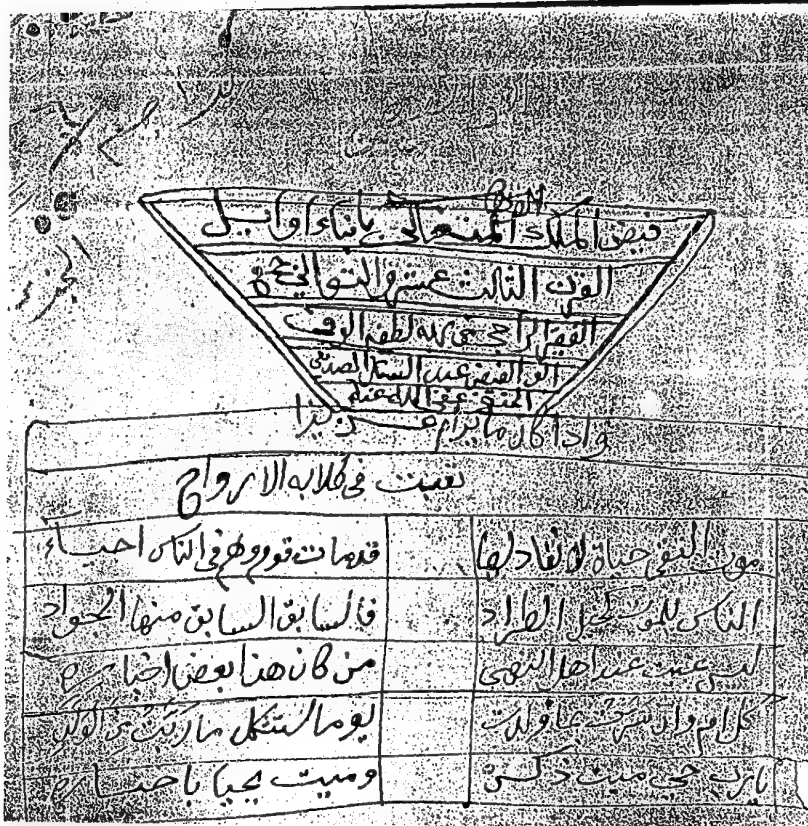 فيض الملك المتعالي بأنباء أوائل
القرن الثالث عشر والتوالي جمع
الفقير الراجي من الله لطفه الوفي
ابو الفيض عبد الستار الصديقي
الحنفي عفى الله عنه
واذا كان ما يرام
تعبت في طلابه الارواح
موت التقي حياة لا نفاد لها
قد مات قوم وهم في الناس احياء
الناس للموت كخيل الطراد
فالسابق السابق منها الجواد
ليس عند اهل النهى
من كان هذا بعض اخباره
كل ام وان سرت بما ولدت
يوما ستثكل ما ربت من الولد
يا رب حي ميت ذكره
وميت يحيا باخباره